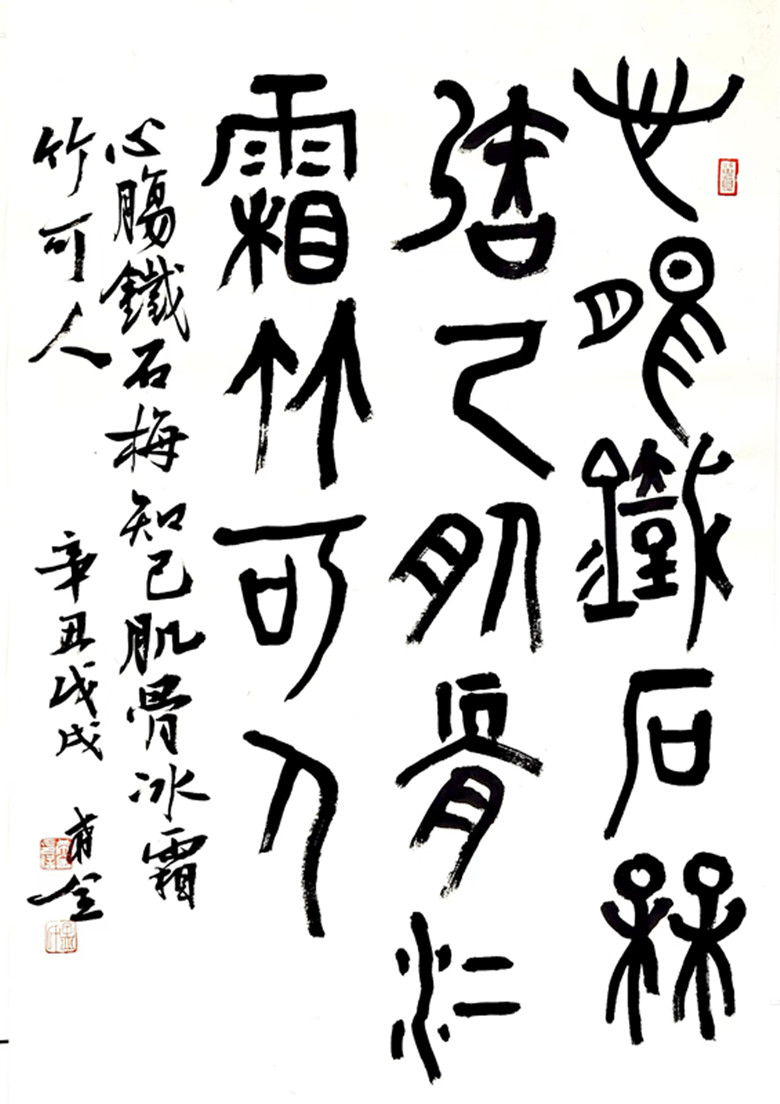 心腸鐵石梅
知己肌骨冰
霜竹可人
心腸鐵石梅知己肌骨冰霜
竹可人
辛丑戊戌